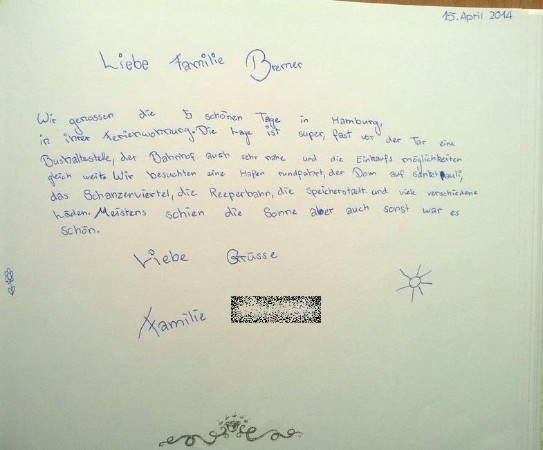 15. April 2014
Liebe Familie Bremer
Wir genossen die 5 schönen Tage in Hamburg,
in ihrer Ferienwohnung. Die Lage ist super, fast vor der Tür eine
Bushaltestelle, der Bahnhof auch sehr nahe und die Einkaufs möglichkeiten
gleich weite. Wir besuchten eine Hafen rundfahrt, der Dom auf Sankt Pauli,
das Schanzenviertel, die Reeperbahn, die Speicherstadt und viele verschiedene
Läden. Meistens schien die Sonne aber auch sonst war es
schön.
Liebe Grüsse
Familie